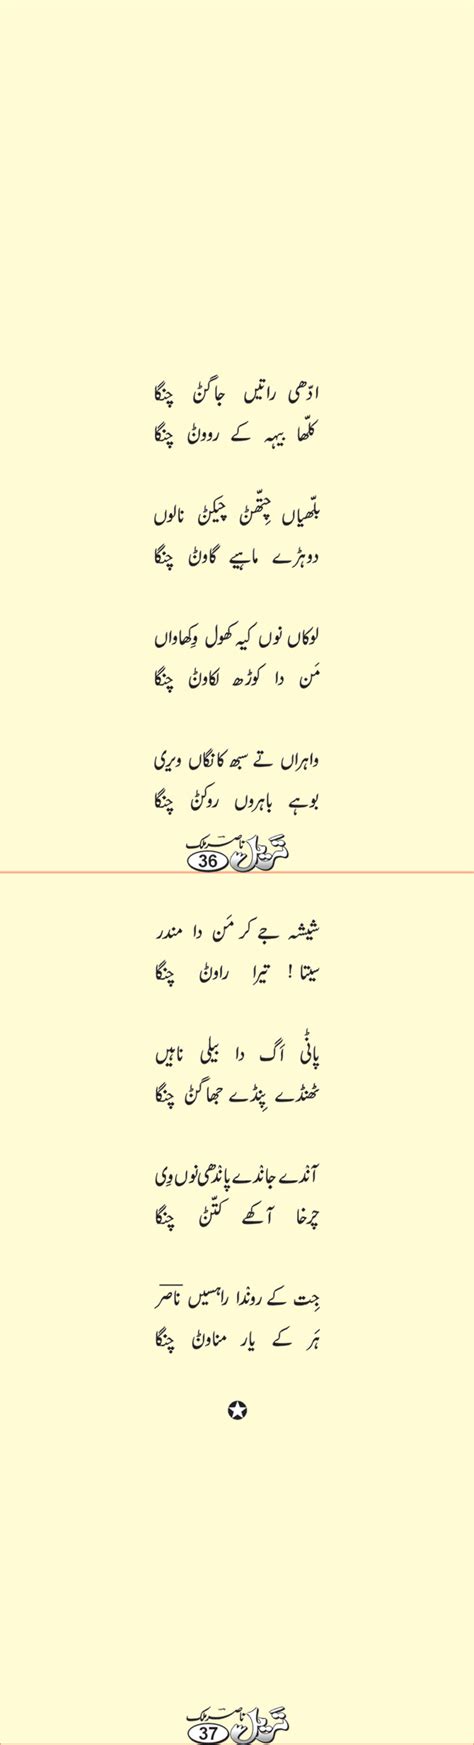 ادّھی راتیں جاگݨ چنگا
کلّھا بیہہ کے رووݨ چنگا
بلّھیاں چِتّھݨ چیکݨ نالوں
دوہڑے ماہیے گاوݨ چنگا
لوکاں نوں کیہ کھول وِکھاواں
مَن دا کوڑھ لکاوݨ چنگا
واہراں تے سبھ کانگاں ویری
بوہے باہروں روکݨ چنگا
تریل ناصر ملک
36
شیشہ جے کر مَن دا مندر
سیتا ! تیرا راوݨ چنگا
پاݨی اَگ دا بیلی ناہیں
ٹھنڈے پِنڈے جھاگݨ چنگا
آندے جاندے پاندھی نوں وی
چرخا آکھے کتّݨ چنگا
جِت کے روندا راہسیں ناصر
ہَر کے یار مناوݨ چنگا
تریل ناصر ملک
37